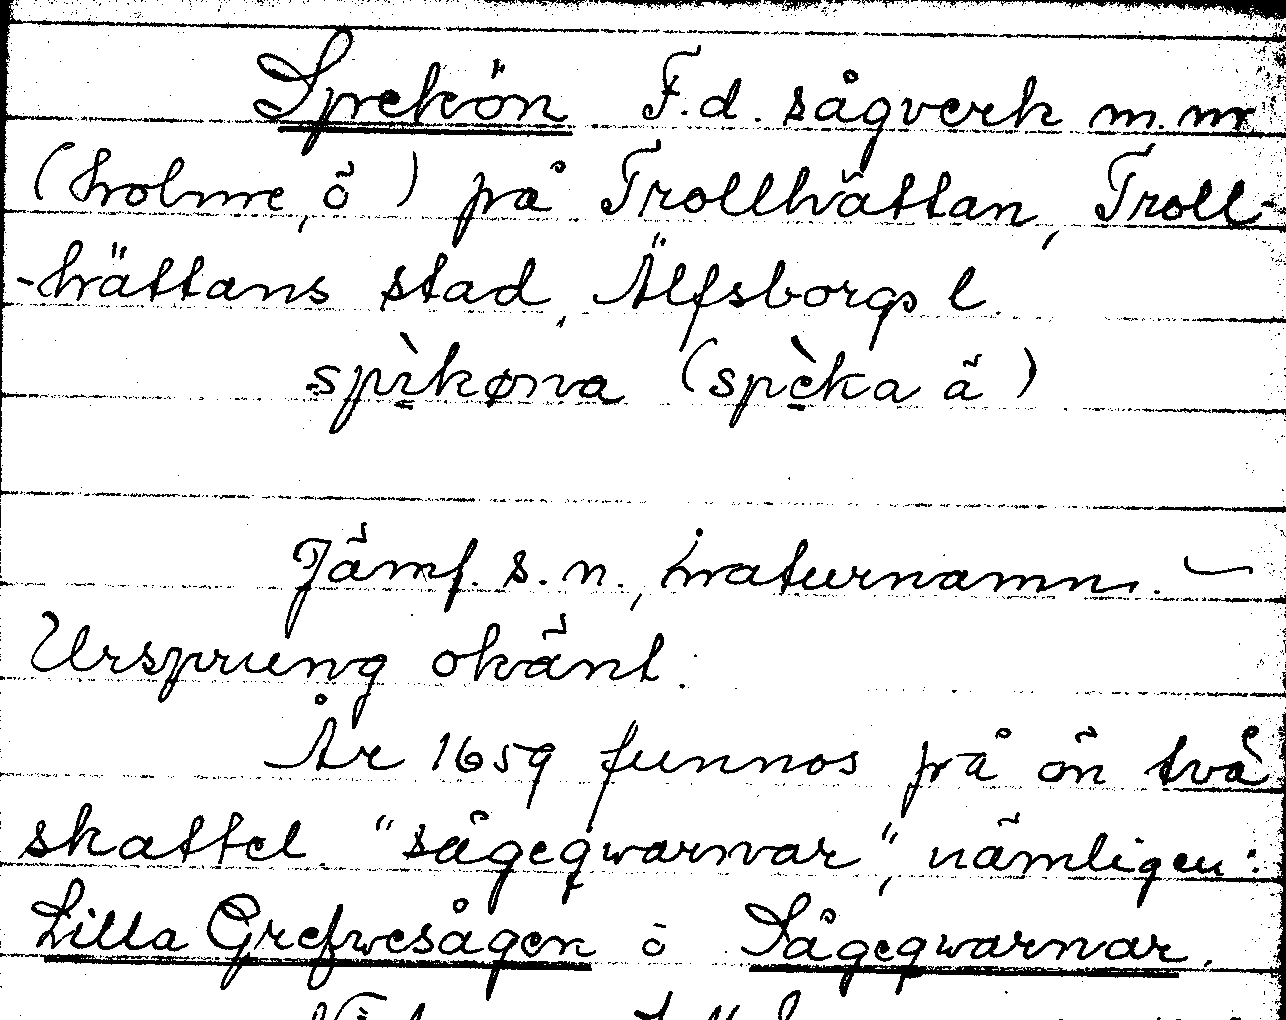 Spekön F.d. sågverk m.m.
(holme, ö) på Trollhättan, Troll-
-hättans stad, Älfsborgs l.
spìkøna (spèka ä)
Jämf. s. n., inaturnamn. —
Ursprung okänt.
År 1659 funnos på ön två
skattel. "sågeqwarnar", nämligen:
Lilla Grefwesågen o Sågeqwarnar.